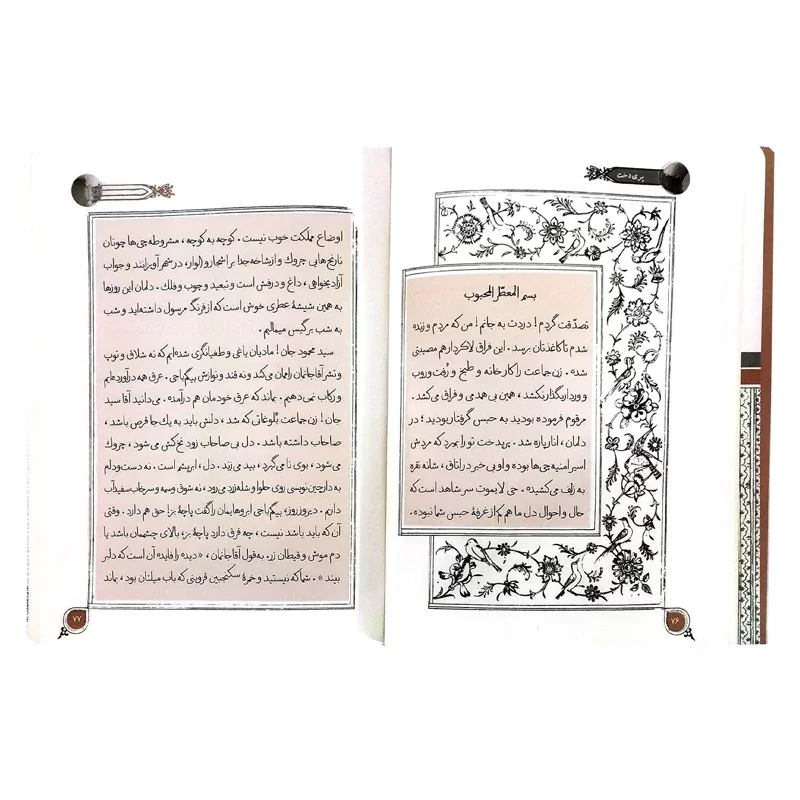 پریدخت
بسم المعطّر المحبوب
تصدّقت گردم! دردت به جانم! من که مردم و زنده
شدم تا کاغذتان برسد. این فراق لاکردار هم مصیبتی
شده. زن جماعت را کار خانه و طبخ و رُفت و روب
و وردار بگذار نکشد، همین بی‌همدمی و فراق می‌کُشد.
مرقوم فرموده بودید به حبس گرفتار بودید؛ در
دلمان، انار پاره شد. پریدخت تو را بمیرد که مردش
اسیر امنیه‌چی‌ها بوده و او بی‌خبر در اتاق، شانه نقره
به زلف می‌کشیده. حی لایموت سر شاهد است که
حال و احوال دل ما هم کم از غرفهٔ حبس شما نبوده.
۷۶
اوضاع مملکت خوب نیست. کوچه به کوچه، مشروطه‌چی‌ها چونان
نارنج‌هایی چروک و از شاخه جدا بر اشجار و الوار، در شهر آویزانند و جواب
آزادیخواهی، داغ و درفش است و تبعید و چوب و فلک. دلمان این روزها
به همین شیشهٔ عطری خوش است که از فرنگ مرسول داشته‌اید و شب
به شب بر گیس میمالیم.
سید محمود جان! مادیان یاغی و طغیانگری شده‌ایم که نه شلاق و توپ
و تشر آقاجانمان راممان می‌کند و نه قند و نوازش بیگم‌باجی. عرق هم درآورده‌ایم
و رکاب نمی‌دهیم. بماند که عرق خودمان هم درآمده. می‌دانید آقا سید
جان! زن جماعت بُلوغاتی که شد، دلش باید به یک جا قرص باشد،
صاحاب داشته باشد. دل بی‌صاحاب زود نخ‌کش می‌شود، چروک
می‌شود، بوی نا می‌گیرد، بید می‌زند. دل، ابریشم است. نه دست و دلم
به دارچین‌نویسی روی حلوا و شله‌زرد می‌رود، نه شوق وسمه و سرخاب سفیدآب
داریم. دیروز روز، بیگم‌باجی ابروهایمان را گفت پاچهٔ بز! حق هم دارد. وقتی
آن که باید باشد نیست، چه فرق دارد پاچهٔ بز، بالای چشممان باشد یا
دم موش و قیطان زر. به قول آقاجانمان، «دیده را فایده آن است که دلبر
بیند». شما که نیستید و خمرهٔ سکنجبین قزوینی که باب میلتان بود، بماند
۷۷